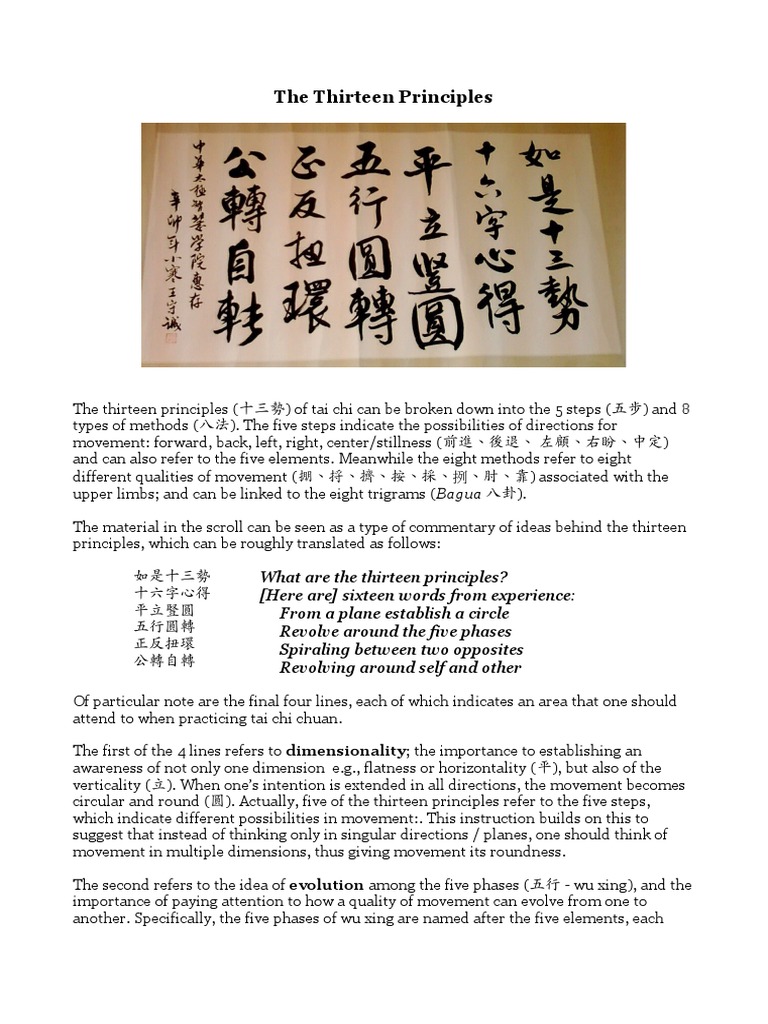 The Thirteen Principles
如是十三勢
十六字心得
平立豎圓
五行圓轉
正反扭環
公轉自転
中華太極哲藝学院惠存
辛卯年小寒王守誠
The thirteen principles (十三勢) of tai chi can be broken down into the 5 steps (五步) and 8
types of methods (八法). The five steps indicate the possibilities of directions for
movement: forward, back, left, right, center/stillness (前進、後退、 左顧、右盼、中定)
and can also refer to the five elements. Meanwhile the eight methods refer to eight
different qualities of movement (掤、捋、擠、按、採、挒、肘、靠) associated with the
upper limbs; and can be linked to the eight trigrams (Bagua 八卦).
The material in the scroll can be seen as a type of commentary of ideas behind the thirteen
principles, which can be roughly translated as follows:
如是十三勢 What are the thirteen principles?
十六字心得 [Here are] sixteen words from experience:
平立豎圓 From a plane establish a circle
五行圓轉 Revolve around the five phases
正反扭環 Spiraling between two opposites
公轉自轉 Revolving around self and other
Of particular note are the final four lines, each of which indicates an area that one should
attend to when practicing tai chi chuan.
The first of the 4 lines refers to dimensionality; the importance to establishing an
awareness of not only one dimension e.g., flatness or horizontality (平), but also of the
verticality (立). When one's intention is extended in all directions, the movement becomes
circular and round (圓). Actually, five of the thirteen principles refer to the five steps,
which indicate different possibilities in movement:. This instruction builds on this to
suggest that instead of thinking only in singular directions / planes, one should think of
movement in multiple dimensions, thus giving movement its roundness.
The second refers to the idea of evolution among the five phases (五行 - wu xing), and the
importance of paying attention to how a quality of movement can evolve from one to
another. Specifically, the five phases of wu xing are named after the five elements, each